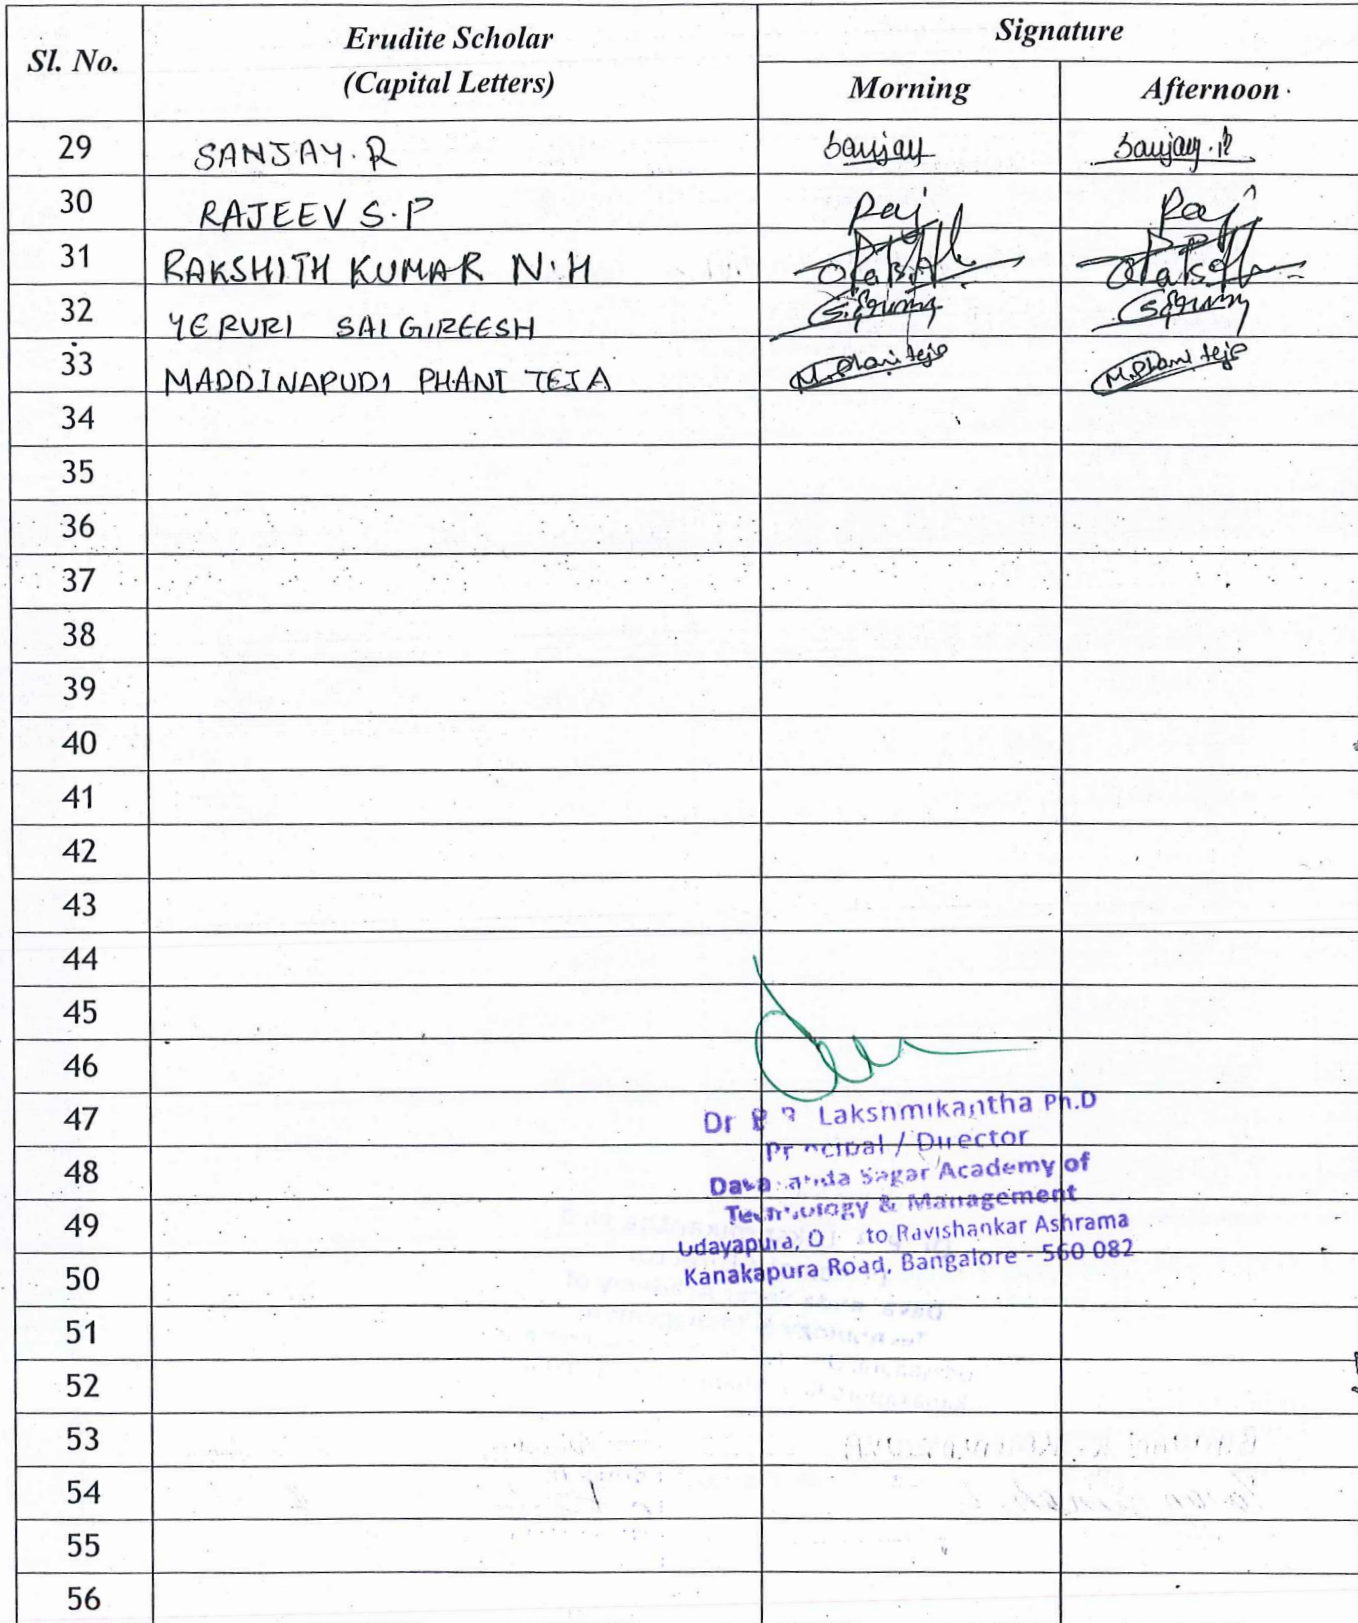 Sl. No. Erudite Scholar (Capital Letters) Signature
Morning Afternoon
29 SANJAY.R Sanjay Sanjay.R
30 RAJEEV S.P Raj Raj
31 RAKSHITH KUMAR N.H
32 YERURI SAI GIREESH
33 MADDINAPUDI PHANI TEJA M.Phani teja M.Phani teja
34
35
36
37
38
39
40
41
42
43
44
45
46
47
48
49
50
51
52
53
54
55
56
Dr Lakshmikantha Ph.D
Principal / Director
Dayananda Sagar Academy of
Technology & Management
Udayapura, O to Ravishankar Ashrama
Kanakapura Road, Bangalore - 560 082